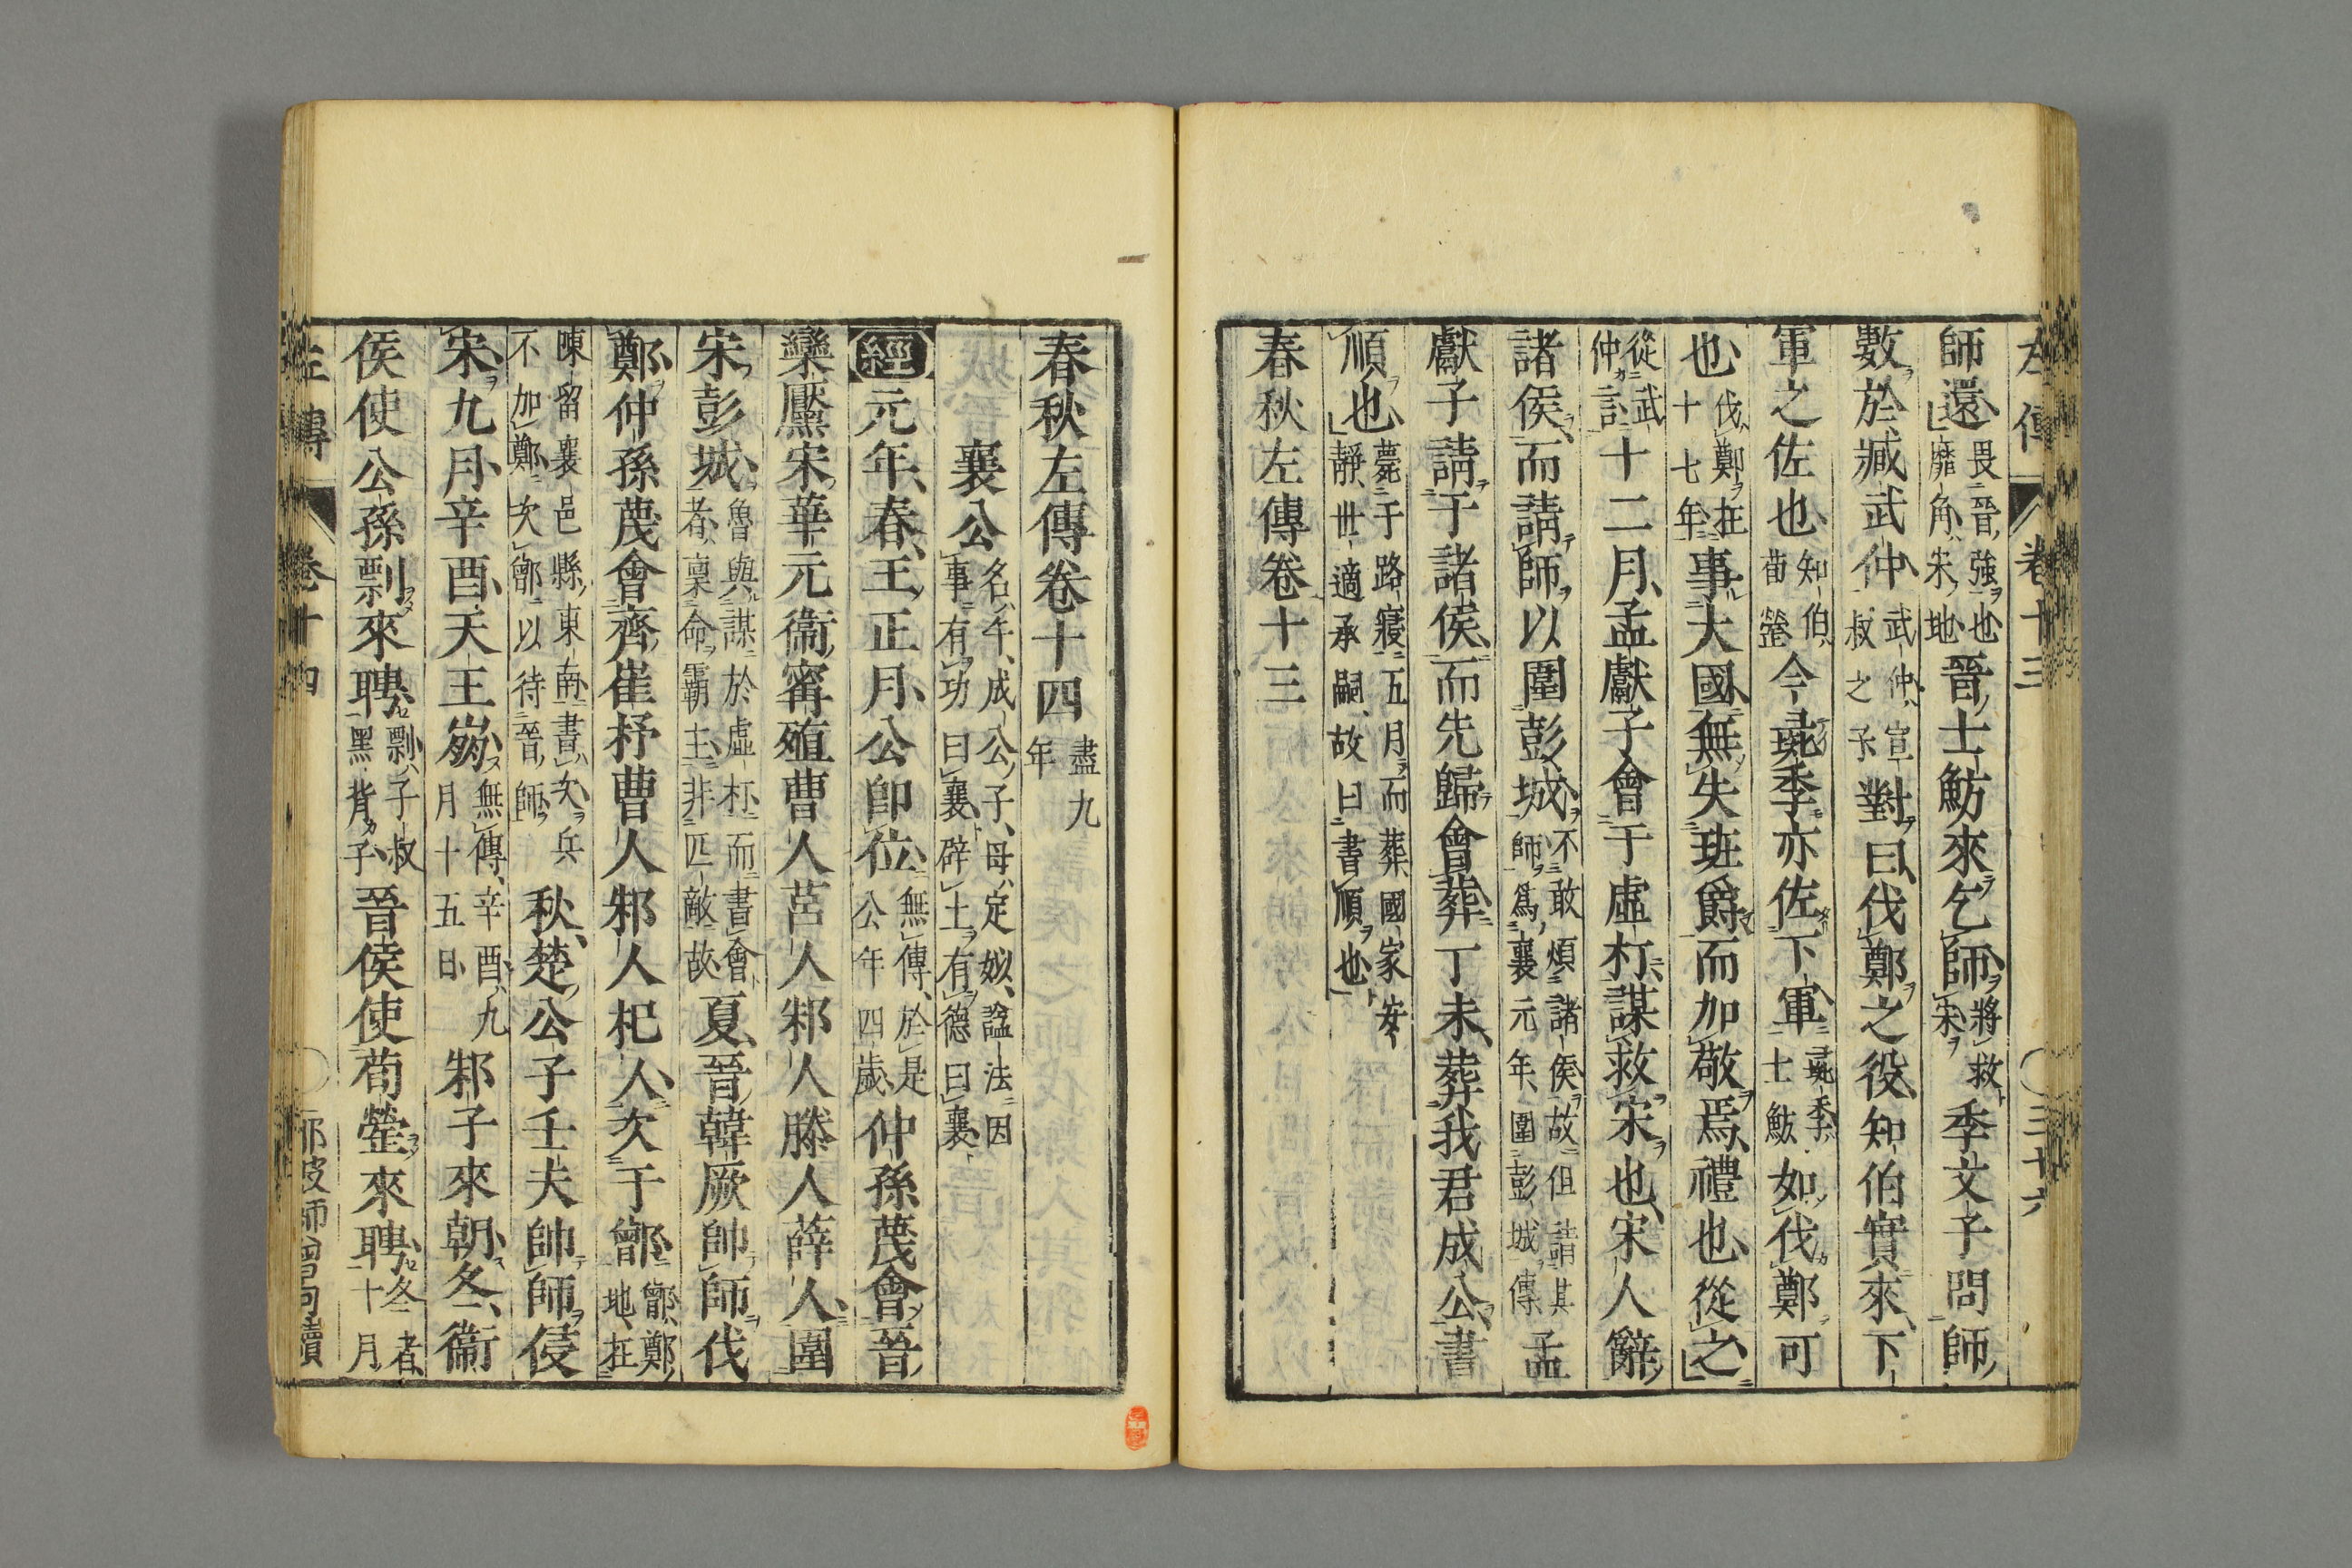 左傳 卷十三 ○三十六
師還畏晉強也靡角宋地晉士魴來乞師將救宋季文子問師
數於臧武仲武仲宣叔之子對曰伐鄭之役知伯實來下
軍之佐也知伯荀罃今彘季亦佐下軍彘季士魴如伐鄭可
也伐鄭在十七年事大國無失班爵而加敬焉禮也從之
從武仲言十二月孟獻子會于虛朾謀救宋也宋人辭
諸侯而請師以圍彭城不敢煩諸侯故但請其師爲襄元年圍彭城傳孟
獻子請于諸侯而先歸會葬丁未葬我君成公書
順也薨于路寢五月而葬國家安靜世適承嗣故曰書順也
春秋左傳卷十三
春秋左傳卷十四盡九年
襄公名午成公子母定姒諡法因事有功曰襄辟土有德曰襄
經元年春王正月公卽位無傳於是公年四歲仲孫蔑會晉
欒黶宋華元衞甯殖曹人莒人邾人滕人薛人圍
宋彭城魯與謀於虛朾而書會者稟命霸主非匹敵故夏晉韓厥帥師伐
鄭仲孫蔑會齊崔杼曹人邾人杞人次于鄫鄫鄭地在
陳留襄邑縣東南書次兵不加鄭次鄫以待晉師秋楚公子壬夫帥師侵
宋九月辛酉天王崩無傳辛酉九月十五日邾子來朝冬衞
侯使公孫剽來聘剽子叔黑背子晉侯使荀罃來聘冬者十月
左傳 卷十四 ○一 那波師曾句讀